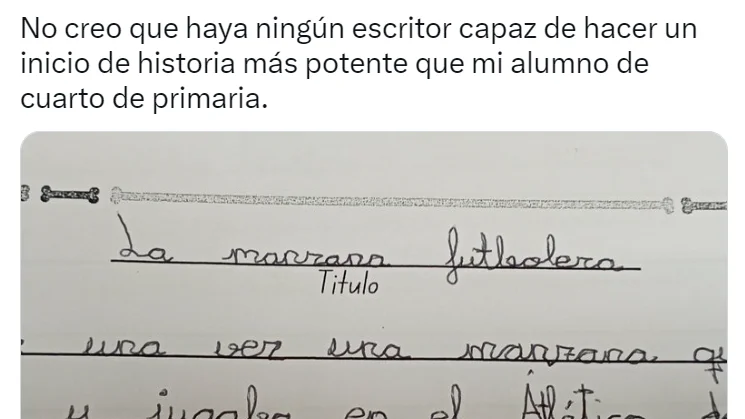 No creo que haya ningún escritor capaz de hacer un
inicio de historia más potente que mi alumno de
cuarto de primaria.
La manzana futbolera
Titulo
una vez una manzana q
y jugaba en el Atléti